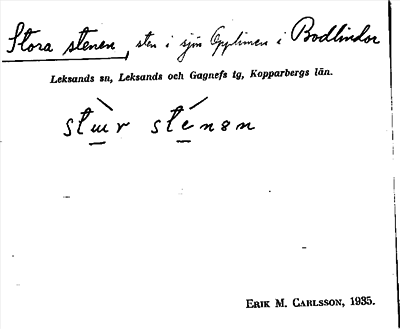 Stora stenen, sten i sjön Opplimen i Bodlindor
Leksands sn, Leksands och Gagnefs tg, Kopparbergs län.
stɯ̀r sténən
ERIK M. CARLSSON, 1935.